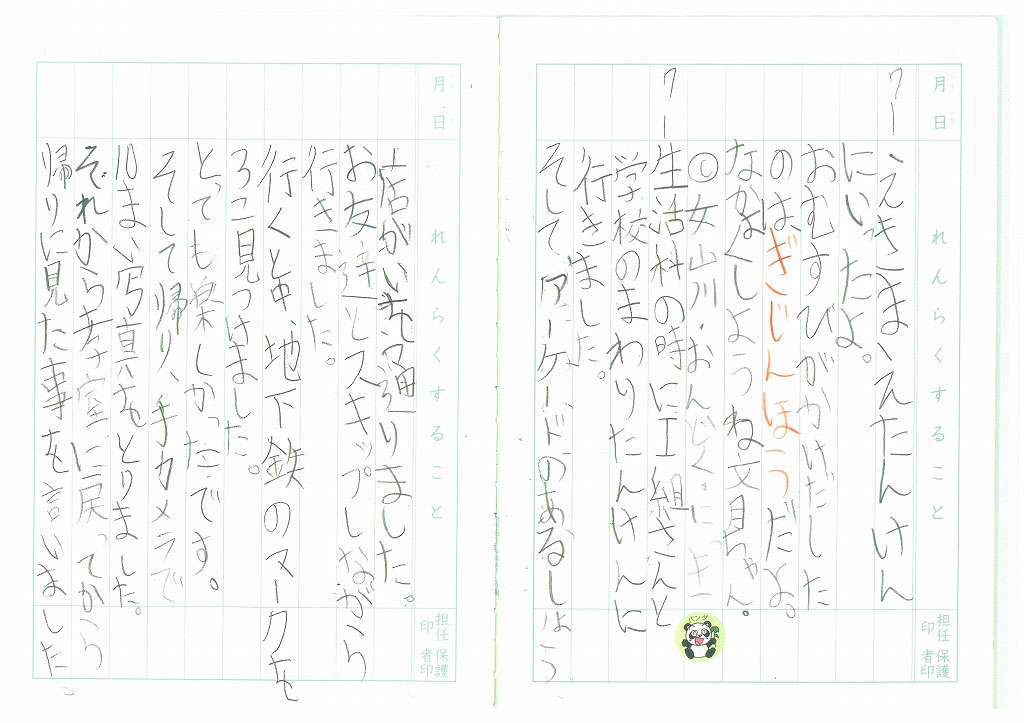 月 日 れんらくすること 担任印 保護者印
ワー えきまえたんけん
にいったよ。
おむすびがかけだした
のはぎじんほうだよ。
なかよくしようね文月ちゃん。
©女山川.おんどく.にっキー
パンダ
ワー 生活科の時に工組さんと
学校のまわりたんけんに
行きました。
そしてアーケードのあるしょう
月 日 れんらくすること 担任印 保護者印
店がいも通りました。
お友達とスキップしながら
行きました。
行くと中、地下鉄のマークを
3こ見つけました。
とっても楽しかったです。
そして帰り、手カメラで
10まい写真をとりました。
それから教室に戻ってから
帰りに見た事を言いました